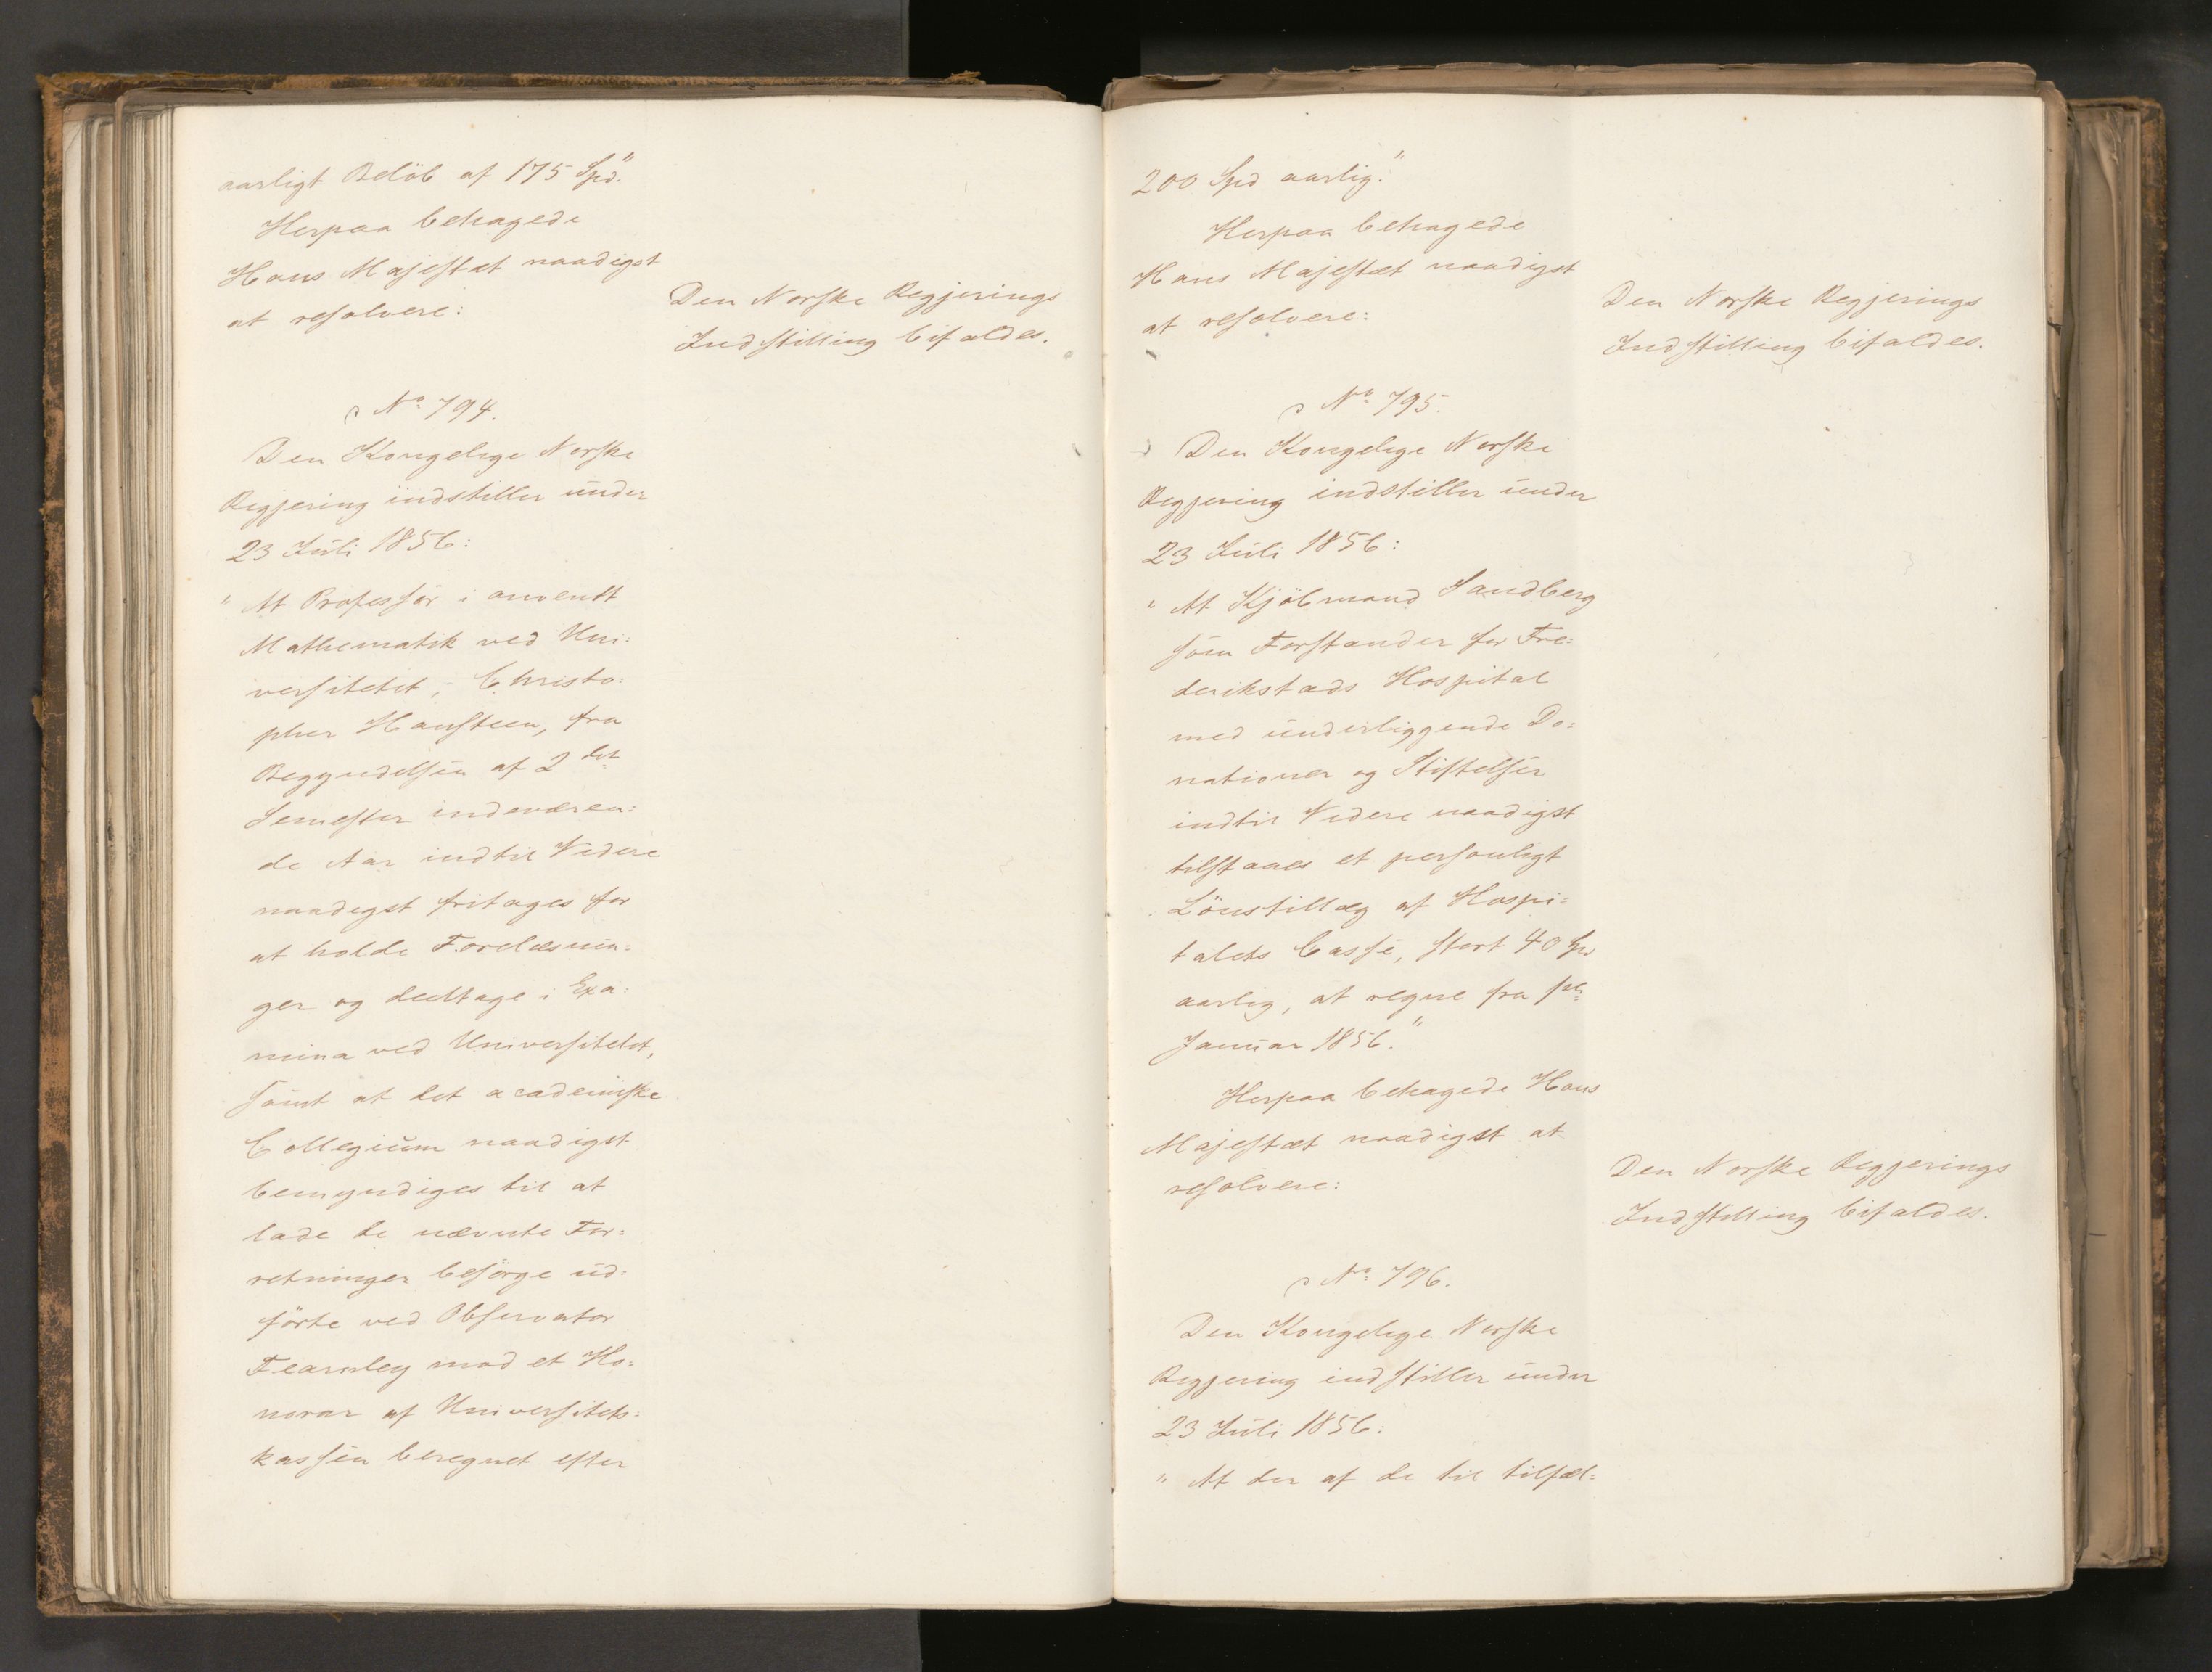 aarligt Belöb af 175 Spd."
Herpaa behagede
Hans Majestæt naadigst
at resolvere:
Den Norske Regjerings
Indstilling bifaldes.
No 794.
Den Kongelige Norske
Regjering indstiller under
23 Juli 1856:
"At Professor i anvendt
Mathematik ved Uni=
versitetet, Christo=
pher Hansteen, fra
Begyndelsen af 2det
Semester indeværen=
de Aar indtil Videre
naadigst fritages for
at holde Forelæsnin=
ger og deeltage i Exa=
mina ved Universitetet,
samt at det academiske
Collegium naadigst
bemyndiges til at
lade de nævnte For=
retninger besörge ud=
förte ved Observator
Fearnley mod et Ho=
norar af Universitets=
kassen beregnet efter
200 Spd aarlig."
Herpaa behagede
Hans Majestæt naadigst
at resolvere:
Den Norske Regjerings
Indstilling bifaldes.
No 795.
Den Kongelige Norske
Regjering indstiller under
23 Juli 1856:
"At Kjöbmand Sandberg
som Forstander for Fre=
derikstads Hospital
med underliggende Do=
nationer og Stiftelser
indtil Videre naadigst
tilstaaes et personligt
Lönstillæg af Hospi=
talets Casse, stort 40 Spd
aarlig, at regne fra 1ste
Januar 1856."
Herpaa behagede Hans
Majestæt naadigst at
resolvere:
Den Norske Regjerings
Indstilling bifaldes.
No 796.
Den Kongelige Norske
Regjering indstiller under
23 Juli 1856:
"At der af de til tilfæl=